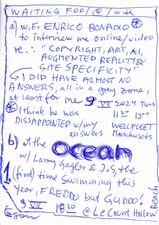 WAITING FOR/@/with
a) w.F. ENRICO BONADIO
to interview me online/video
re.: "COPYRIGHT, ART, AI,
AUGMENTED REALITY &
SITE SPECIFICITY"
I DID HAVE ALMOST NO
ANSWERS, all in a grey zone,
at least for me 9 VII 2024 Tues
(I think he was 11 30 1300
DISAPPOINTED w/my WELLFLEET
answers Massachusetts
b) at the ocean
w/ Larry Gagler & J.S. the
(first) time swimming this
year, FREDDO but GUDDO!
9 VII 1830 @ Le Count Hollow
Beach